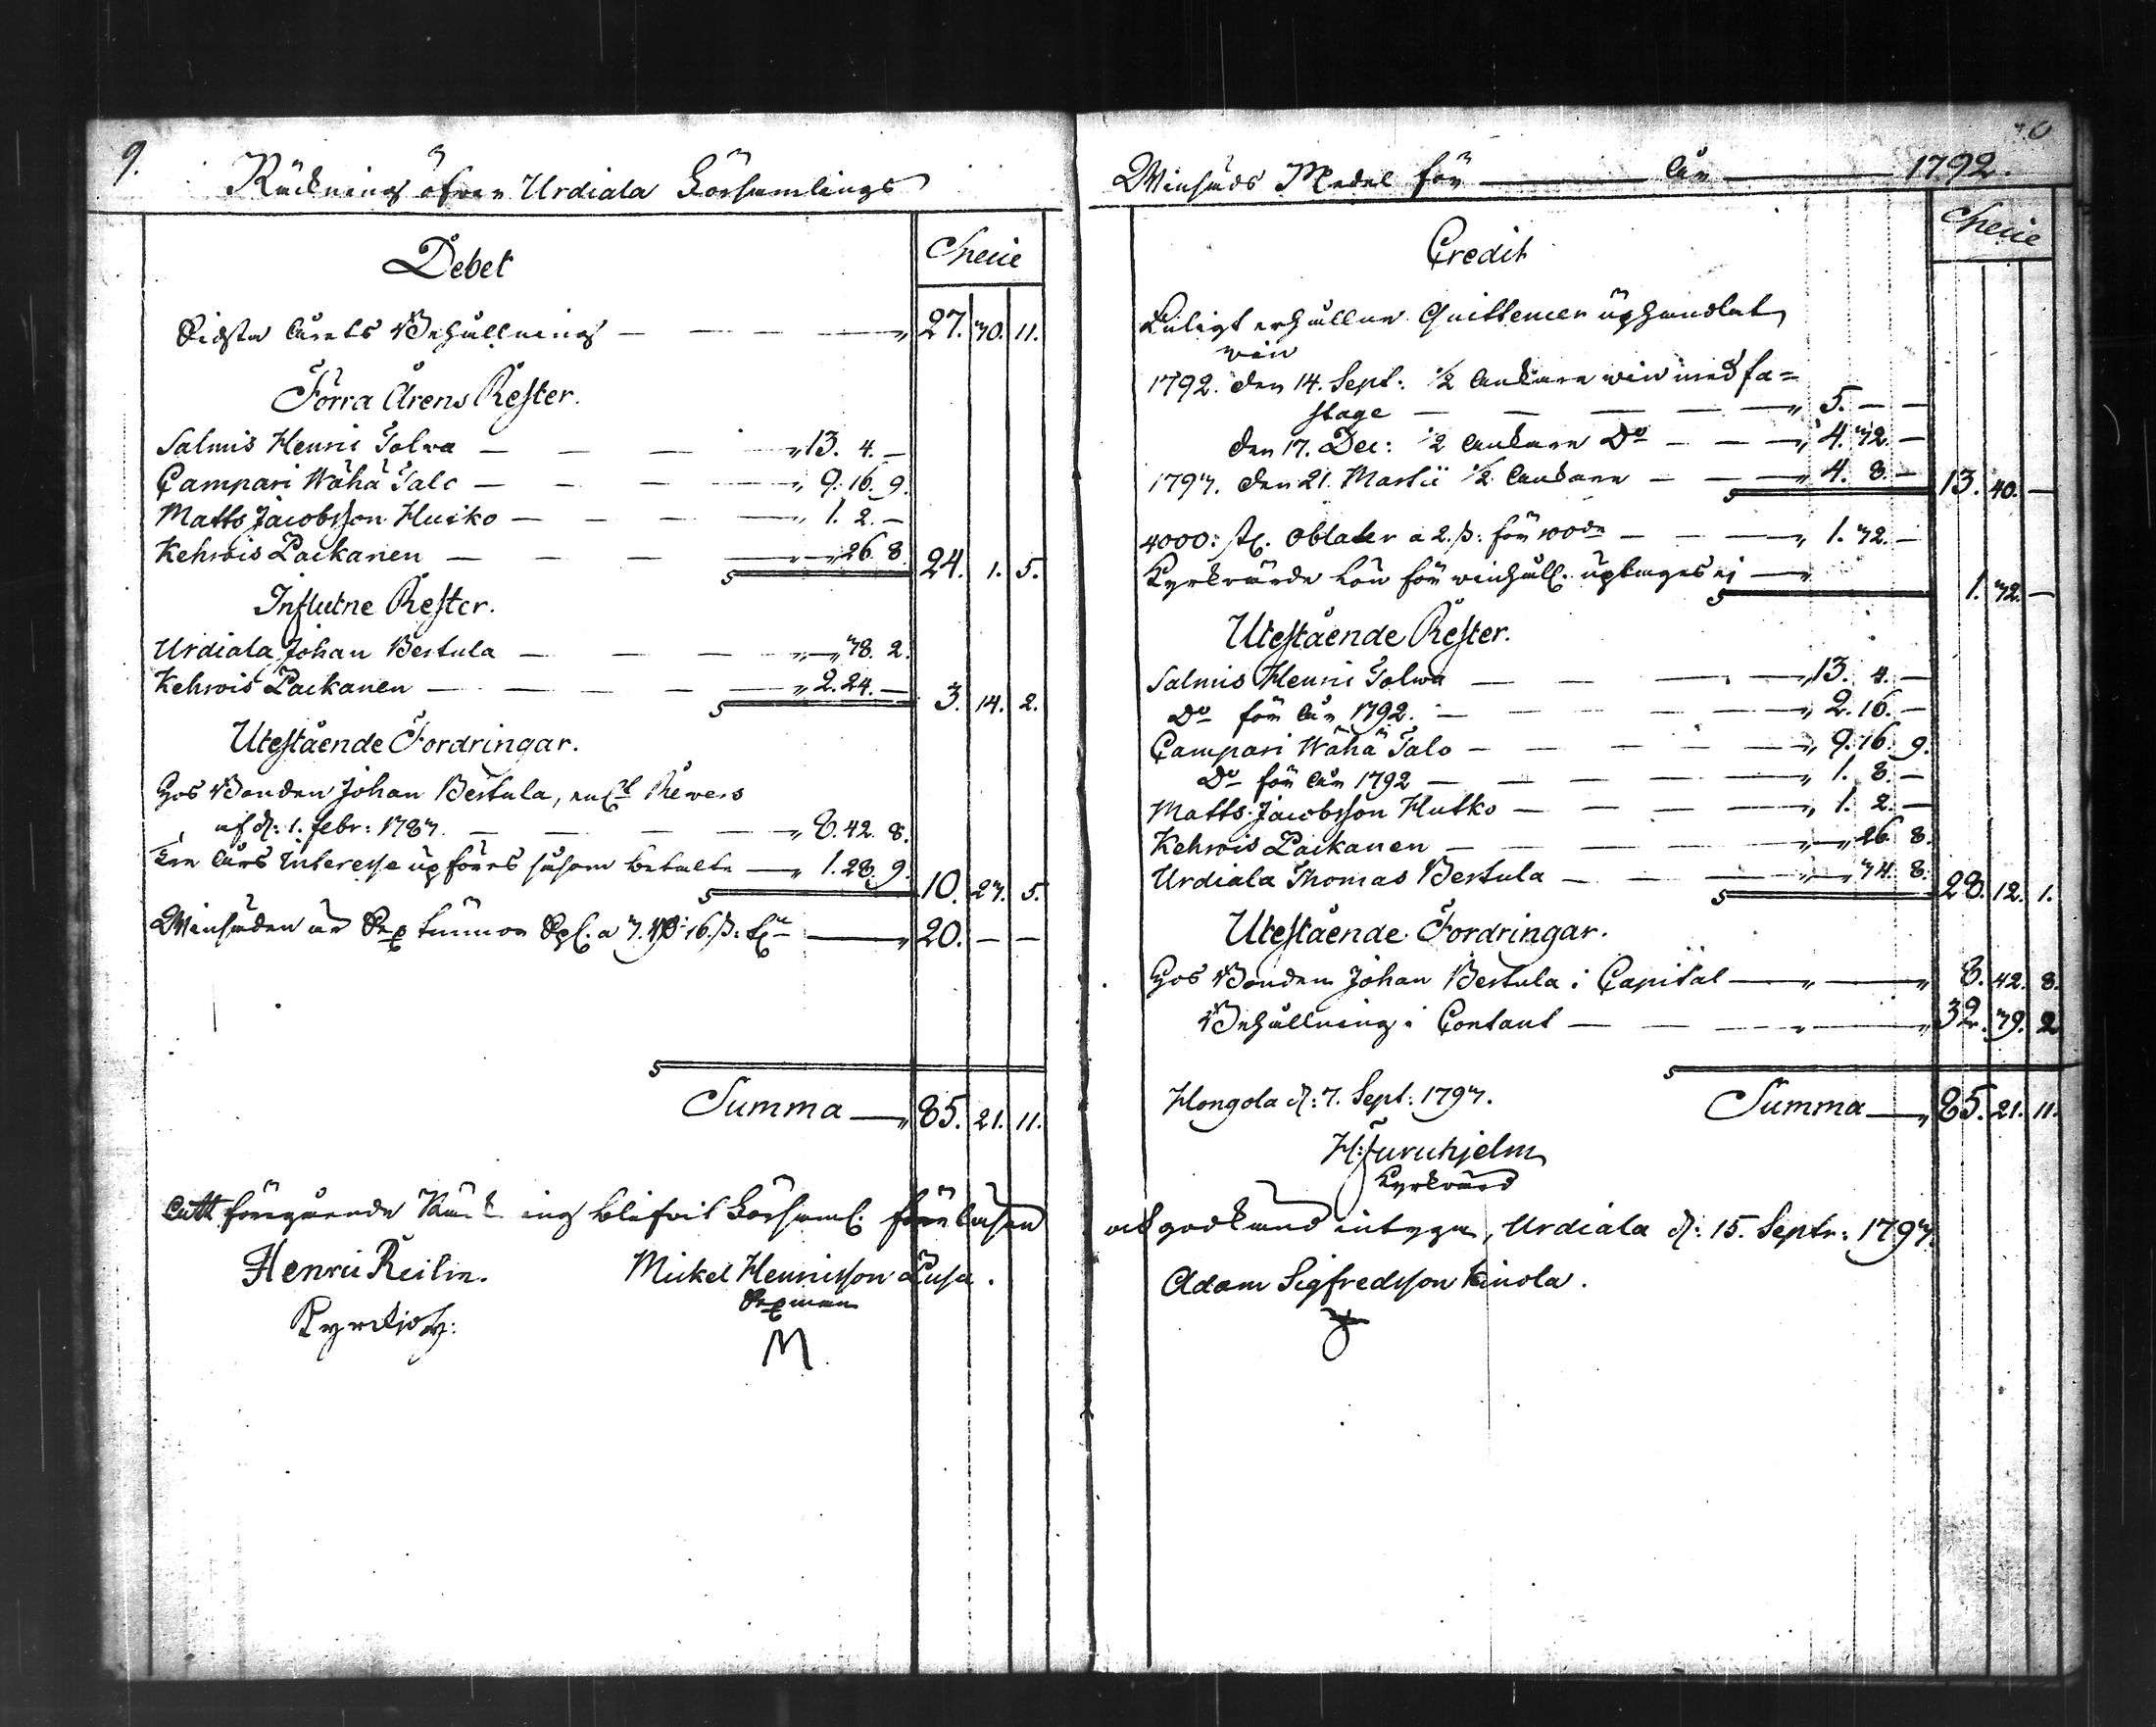 9.
Räckning öfver Urdiala Församlings
Debet
Specie
Sidsta Årets Behållning — — — — „ 27. 30. 11.
Förra Årens Rester.
Salmis Henric Tolwa — — — — „ 13. 4. —
Campari Wähä Talo — — — — „ 9. 16. 9.
Matts Jacobsson Huiko — — — „ 1. 2. —
Kehrois Laikanen — — — — „ 26. 8. 24. 1. 5.
Influtne Rester.
Urdiala Johan Bertula — — — „ — 38. 2.
Kehrois Laikanen — — — — „ 2. 24. — 3. 14. 2.
Utestående Fordringar.
Hos Bonden Johan Bertula, enl:t Revers
af d: 1. febr: 1787. — — — — „ 8. 42. 8.
Tre Års Interesse upföres såsom betalte — „ 1. 28. 9. 10. 23. 5.
Winsäden är Sex tunnor Spl. a 3. RD: 16. ß: tn — „ 20. — —
Summa — „ 85. 21. 11.
Att föregående Räckning blifvit Församl. föreläsen
Henric Reilin.
Kyrckioh:
Mickel Henricsson Lusa.
Sexman
M
Winsäds Medel för — År — 1792.
Credit
Specie
Enligt erhållne Quittencer uphandlat
win
1792. den 14. Sept: 1/2 Ankare win med fa=
stage — — — — „ 5. — —
den 17. Dec: 1/2 Ankare Do — — „ 4. 32. —
1793. den 21. Martii 1/2 Ankare — — „ 4. 8. — 13. 40. —
4000: st. Oblater a 2. ß: för 100de — — „ 1. 32. —
Kyrkvärde Lön för winhåll. uptages ej — „ 1. 32. —
Utestående Rester.
Salmis Henric Tolwa — — — „ 13. 4. —
Do för År 1792. — — — „ 2. 16. —
Campari Wähä Talo — — — „ 9. 16. 9.
Do för År 1792 — — — „ 1. 8. —
Matts Jacobsson Hutko — — — „ 1. 2. —
Kehrois Laikanen — — — „ — 26. 8.
Urdiala Thomas Bertula — — „ — 34. 8. 28. 12. 1.
Utestående Fordringar.
Hos Bonden Johan Bertula i Capital — „ — „ 8. 42. 8.
Behållning i Contant — — „ — „ 32. 39. 2
Hongola d: 7. Sept: 1793. Summa — „ 85. 21. 11.
H: Furuhjelm
Kyrkvärd
och godkänd intyga, Urdiala d: 15. Septr: 1793.
Adam Sigfredsson Kinola.